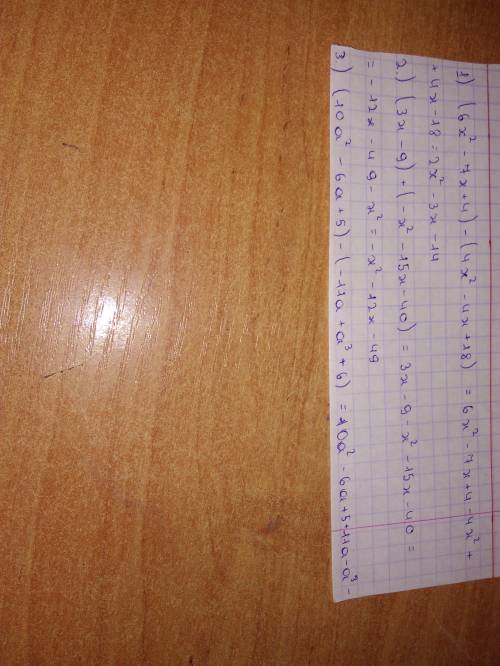 1) (6x² - 7x+4) - (4x² - 4x+18) = 6x² - 7x+4-4x² +
+ 4x - 18 = 2x² - 3x - 14
2.) (3x - 9) + (-x² - 15x - 40) = 3x - 9 - x² - 15x - 40 =
= - 12x - 49 - x² = - x² - 12x - 49
3.) (10a² - 6a + 5) - (-11a + a³ + 6) = 10a² - 6a + 5 + 11a - a³ -